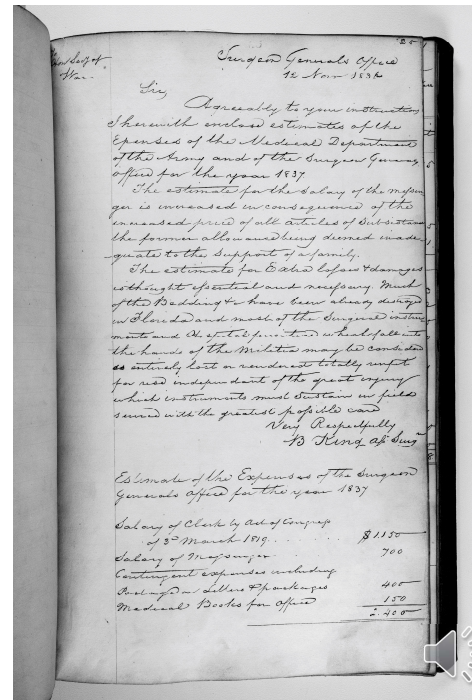 25
Hon Secy of
War.
Surgeon Generals Office
12 Novr 1836
Sir,
Agreeably to your instructions
I herewith enclose estimates of the
Expenses of the Medical Department
of the Army and of the Surgeon Generals
office for the year 1837
The estimate for the salary of the messen
ger is increased in consequence of the
increased price of all articles of Subsistence
the former allowance being deemed inade
quate to the support of a family.
The estimate for Extra losses & damages
is thought essential and necessary. Much
of the Bedding &c have been already destroyed
in Florida and most of the Surgical instru
ments and Hospital furniture which fall into
the hands of the Militia may be considered
as entirely lost or rendered totally unfit
for use independant of the great injury
which instruments must sustain in field
service with the greatest possible care
Very Respectfully
B King asst Surgn
Estimate of the Expenses of the Surgeon
Generals office for the year 1837
Salary of Clerk by Act of Congress
of 3d March 1819 . . . . . . $1.150
Salary of Messenger . . 700
Contingent expenses including
Postage on Letters & packages 400
Medical Books for office 150
2.400